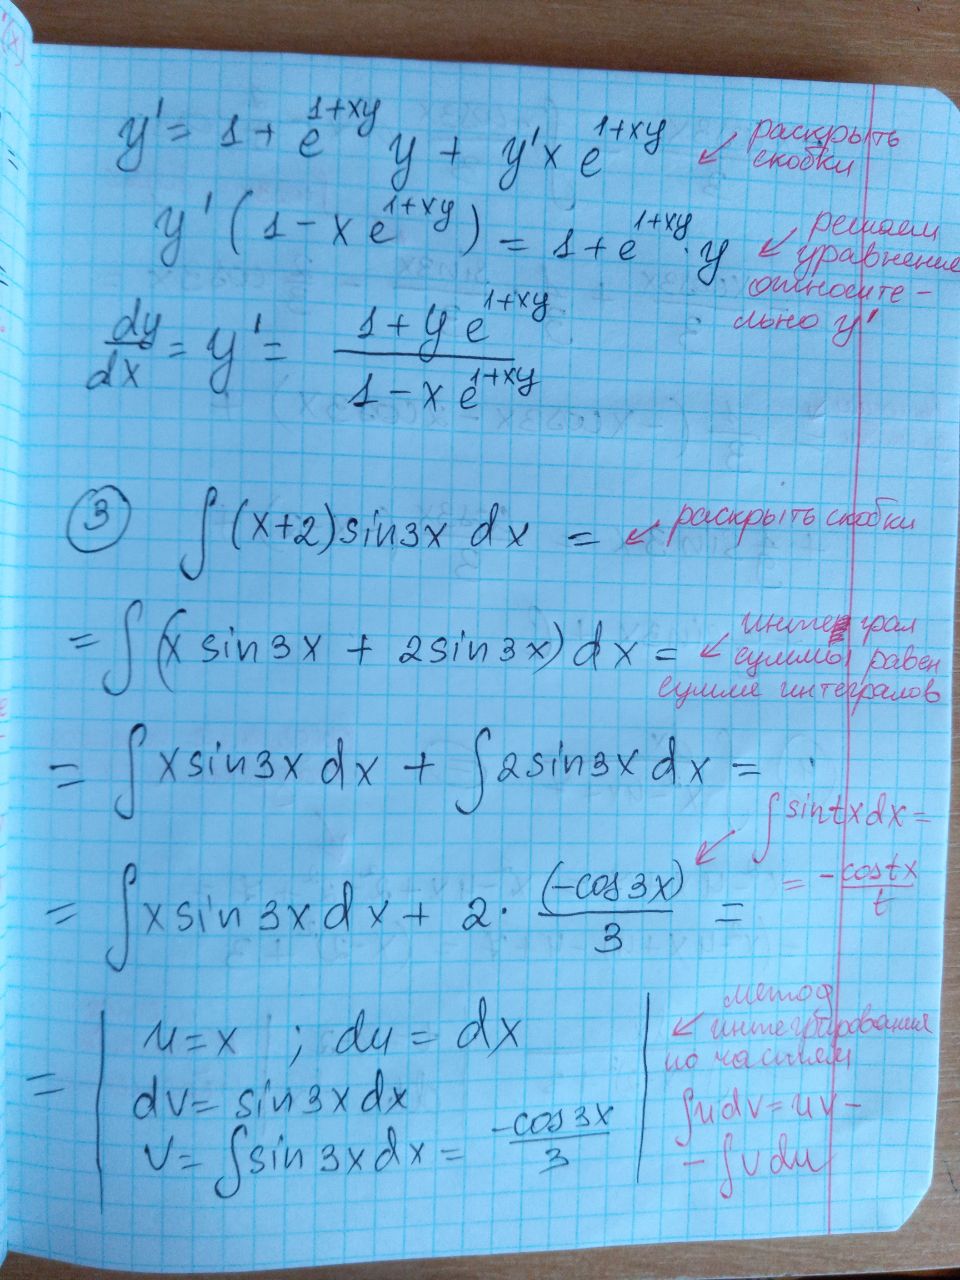 y' = 1 + e^{1+xy} y + y'x e^{1+xy} ↙ раскрыть скобки
y' (1 - x e^{1+xy}) = 1 + e^{1+xy} · y ↙ решаем уравнение относите-льно y'
dy/dx = y' = (1 + y e^{1+xy}) / (1 - x e^{1+xy})
③ ∫(x+2)sin3x dx = ↙ раскрыть скобки
= ∫(x sin3x + 2sin3x)dx = ↙ интеграл суммы равен сумме интегралов
= ∫xsin3x dx + ∫2sin3x dx =
∫sintxdx = = -costx/t
= ∫xsin3xdx + 2 · (-cos3x)/3 =
= | u=x ; du = dx
dv = sin3xdx
v = ∫sin3xdx = -cos3x/3 |
↙ метод интегрирования по частям
∫udv = uv -
- ∫vdu